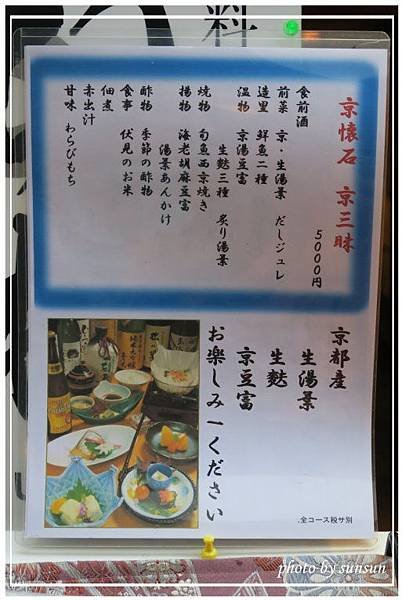 料
京懐石 京三昧
5000円
食前酒
前菜 京・生湯景 だしジュレ
造里 鮮魚二種
温物 京湯豆富
生麩三種 炙り湯景
焼物 旬魚西京焼き
揚物 海老胡麻豆富
湯景あんかけ
酢物 季節の酢物
食事 伏見のお米
佃煮
赤出汁
甘味 わらびもち
京都産
生湯景
生麩
京豆富
お楽しみ一ください
.全コース税サ別
photo by sunsun